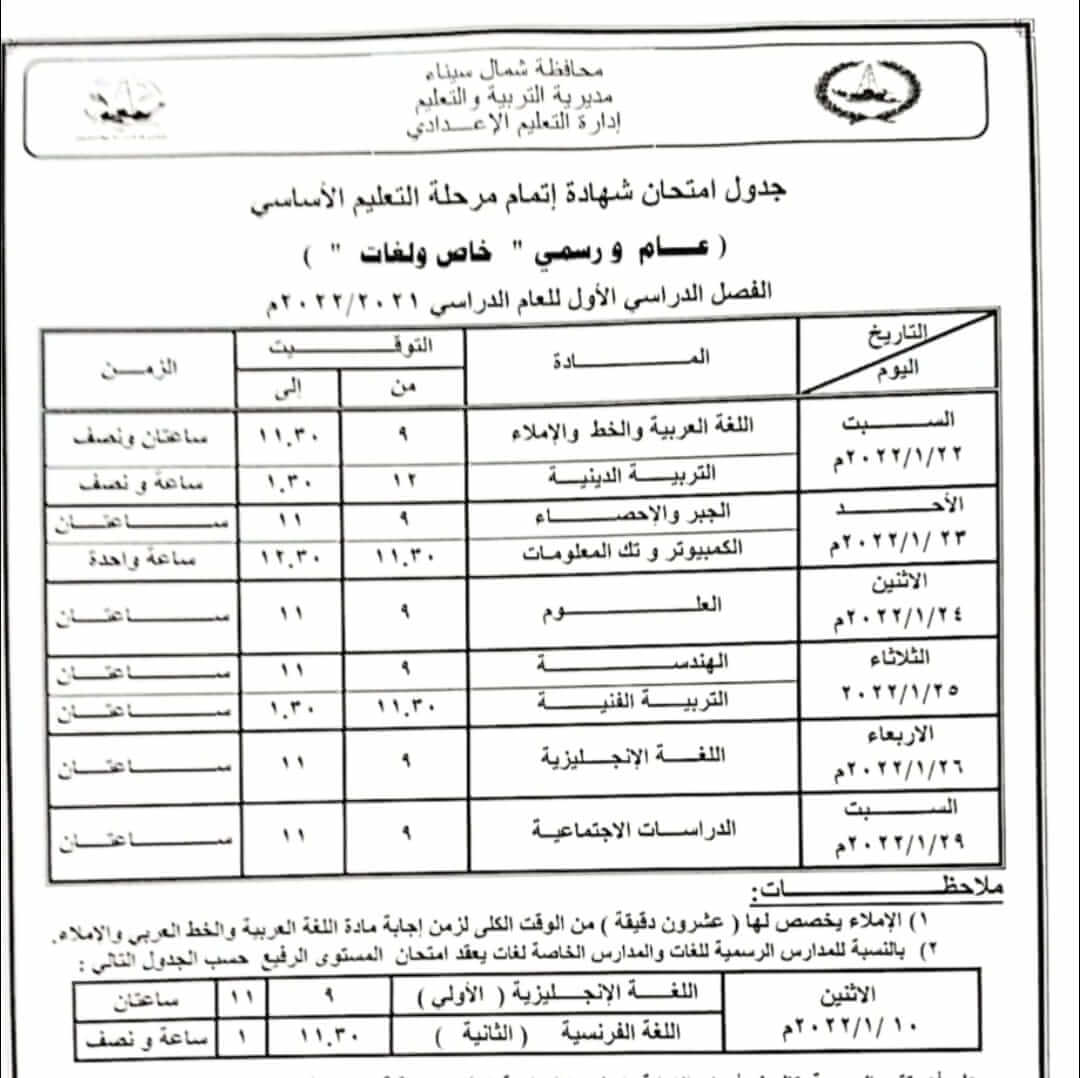 محافظة شمال سيناء
مديرية التربية والتعليم
إدارة التعليم الإعدادي
جدول امتحان شهادة إتمام مرحلة التعليم الأساسي
( عام و رسمي " خاص ولغات " )
الفصل الدراسي الأول للعام الدراسي ٢٠٢٢/٢٠٢١م
التاريخ
اليوم
المادة
التوقيت
من
إلى
الزمن
السبت
٢٠٢٢/١/٢٢م
اللغة العربية والخط والإملاء ٩ ١١.٣٠ ساعتان ونصف
التربية الدينية ١٢ ١.٣٠ ساعة و نصف
الأحد
٢٠٢٢/١/ ٢٣م
الجبر والإحصاء ٩ ١١ ساعتان
الكمبيوتر و تك المعلومات ١١.٣٠ ١٢.٣٠ ساعة واحدة
الاثنين
٢٠٢٢/١/٢٤م
العلوم ٩ ١١ ساعتان
الثلاثاء
٢٠٢٢/١/٢٥
الهندسة ٩ ١١ ساعتان
التربية الفنية ١١.٣٠ ١.٣٠ ساعتان
الاربعاء
٢٠٢٢/١/٢٦م
اللغة الإنجليزية ٩ ١١ ساعتان
السبت
٢٠٢٢/١/٢٩م
الدراسات الاجتماعية ٩ ١١ ساعتان
ملاحظات:
١) الإملاء يخصص لها ( عشرون دقيقة ) من الوقت الكلى لزمن إجابة مادة اللغة العربية والخط العربي والإملاء.
٢) بالنسبة للمدارس الرسمية للغات والمدارس الخاصة لغات يعقد امتحان المستوى الرفيع حسب الجدول التالي :
الاثنين
٢٠٢٢/١/ ١٠م
اللغة الإنجليزية ( الأولي ) ٩ ١١ ساعتان
اللغة الفرنسية ( الثانية ) ١١.٣٠ ١ ساعة و نصف